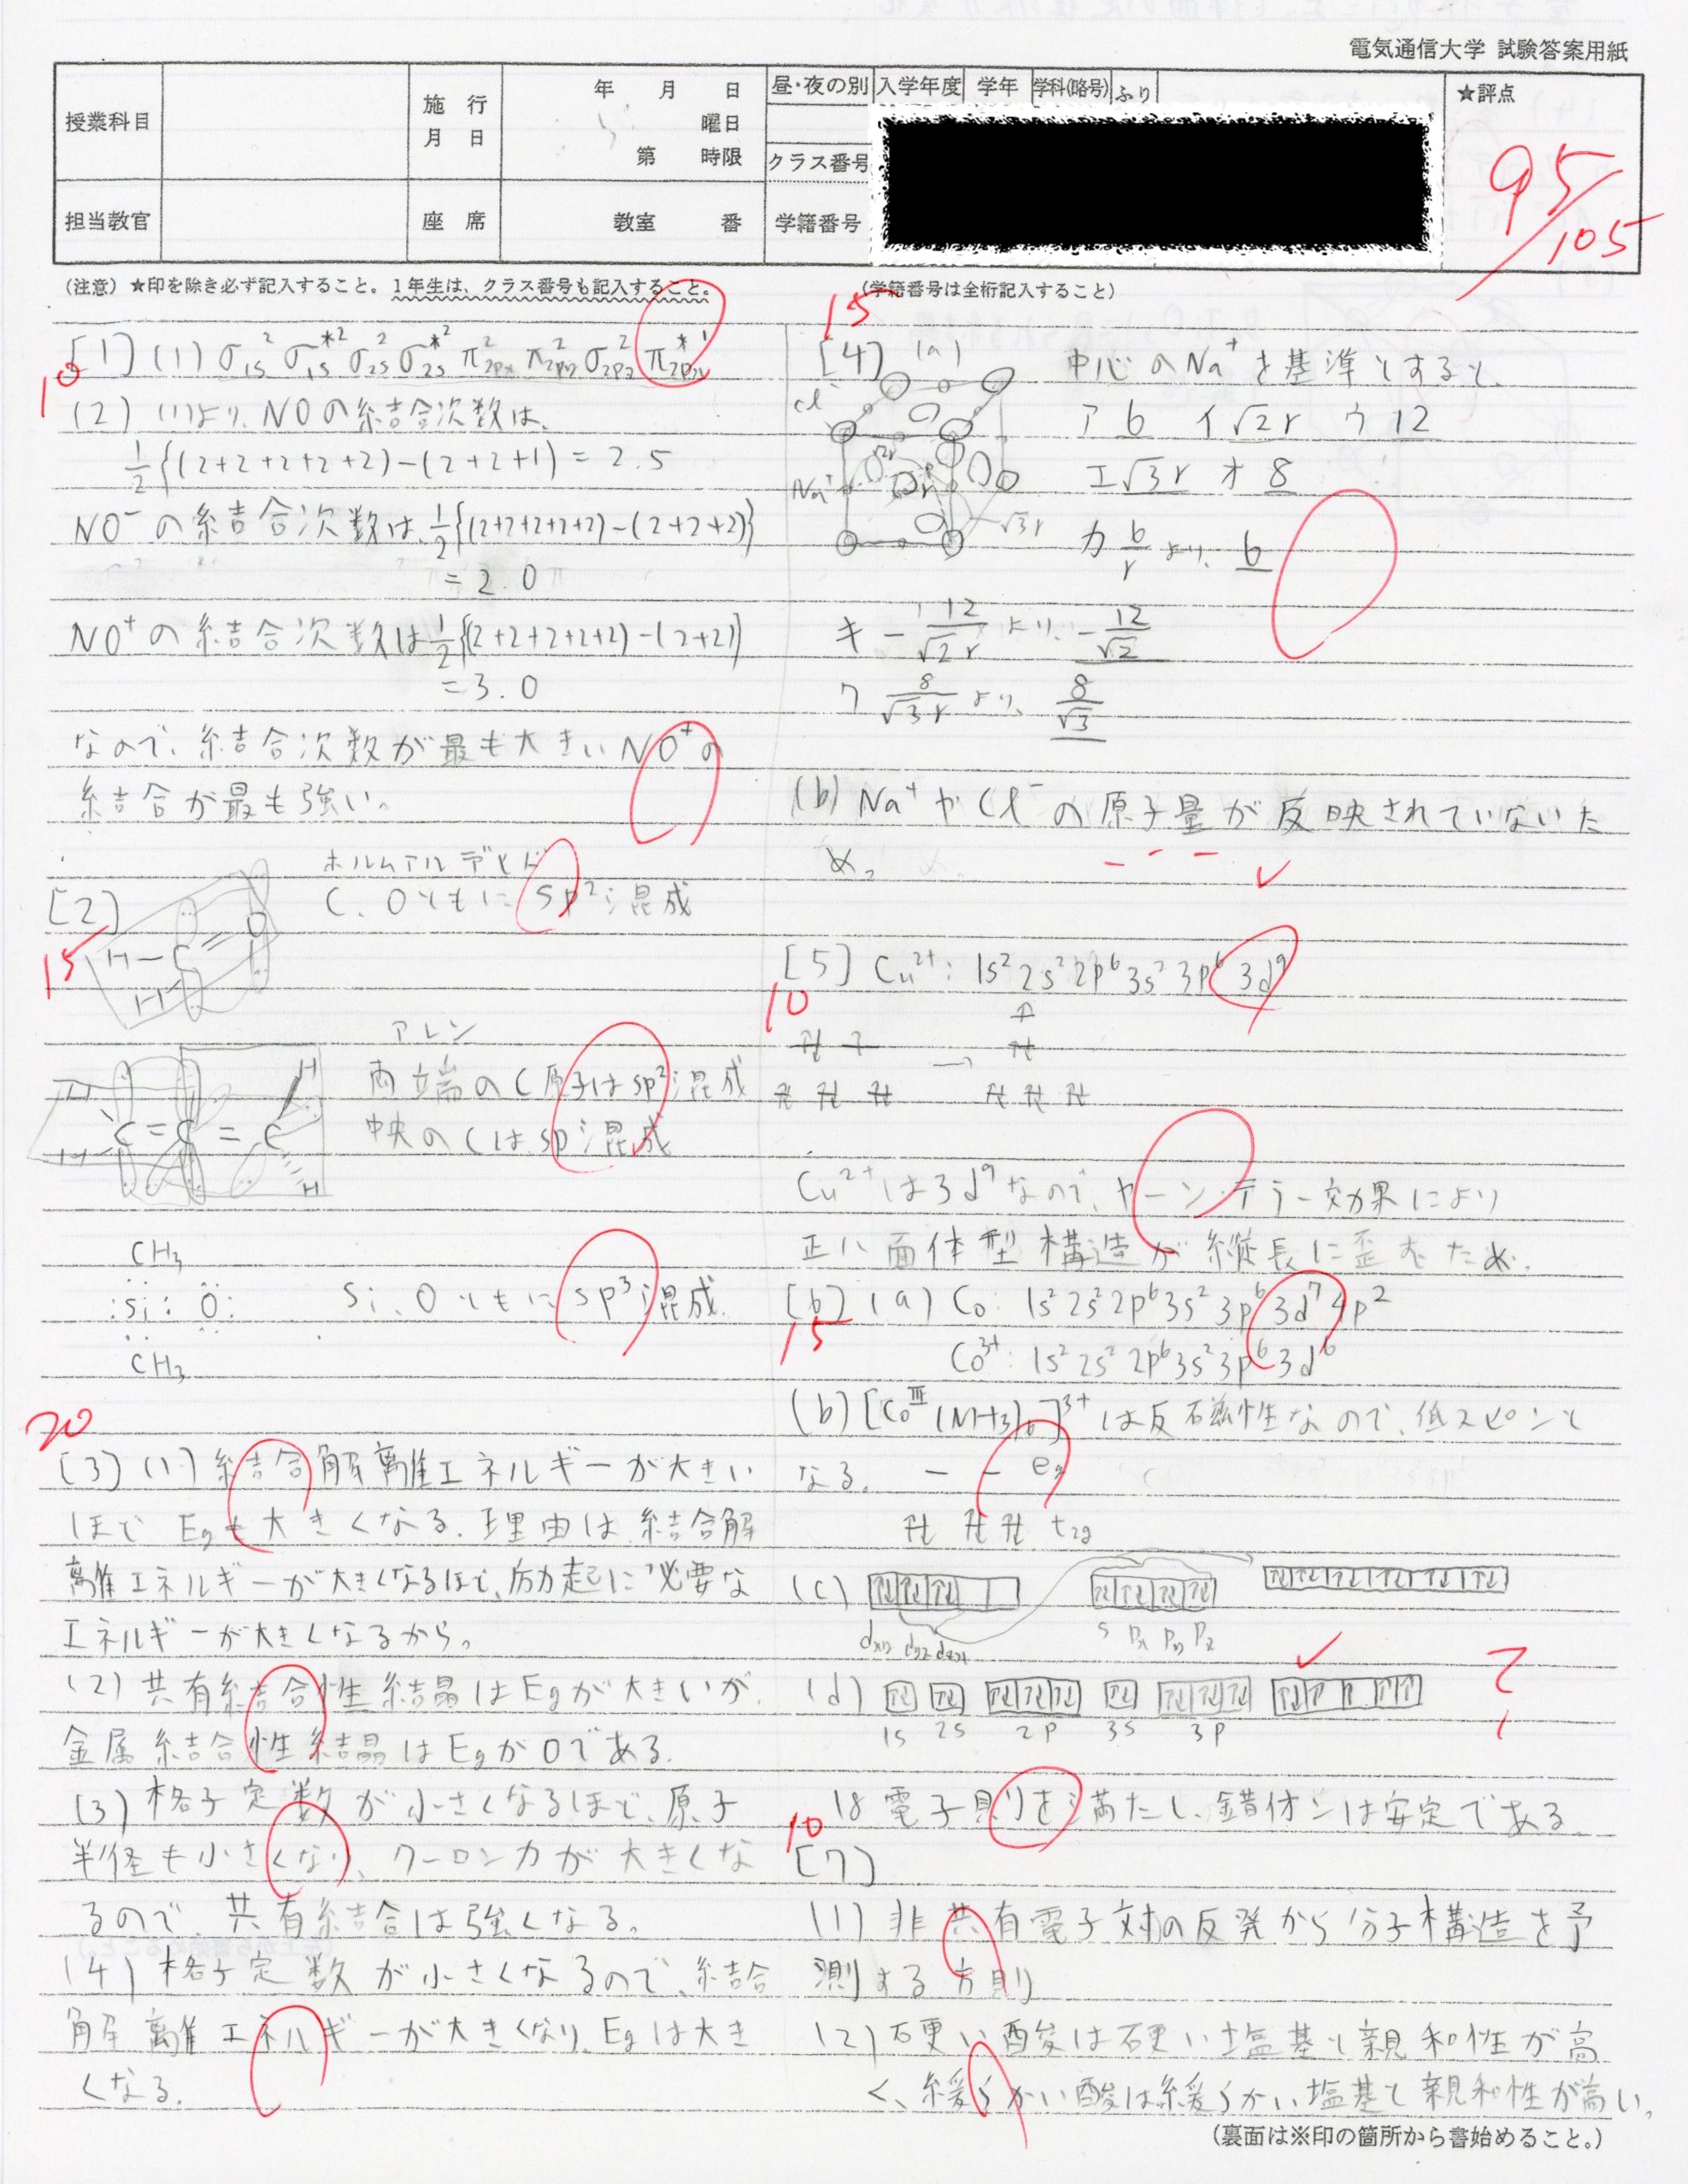 電気通信大学 試験答案用紙
授業科目
施行月日
年 月 日
曜日
第 時限
昼・夜の別
入学年度
学年
学科(略号)
ふり
★評点
クラス番号
担当教官
座席
教室 番
学籍番号
95/105
(注意) ★印を除き必ず記入すること。1年生は、クラス番号も記入すること。
(学籍番号は全桁記入すること)
10
[1] (1) σ1s² σ1s*² σ2s² σ2s*² π2px² π2py² σ2pz² π2px*¹
(2) (1)より、NOの結合次数は、
1/2{(2+2+2+2+2)-(2+2+1) = 2.5
NO⁻の結合次数は、1/2{(2+2+2+2+2)-(2+2+2)}
= 2.0
NO⁺の結合次数は1/2{(2+2+2+2+2)-(2+2)}
= 3.0
なので、結合次数が最も大きいNO⁺の
結合が最も強い。
ホルムアルデヒド
[2]
C、Oともにsp²混成
15
H-C=O
H
アレン
両端のC原子はsp²混成
中央のCはsp混成
H
H
C=C=C
H
H
CH₃
:Si:O:
Si、Oともにsp³混成.
CH₃
20
[3] (1) 結合解離エネルギーが大きい
ほど Egも大きくなる. 理由は、結合解
離エネルギーが大きくなるほど、励起に必要な
エネルギーが大きくなるから。
(2) 共有結合性結晶はEgが大きいが、
金属結合性結晶はEgが0である.
(3) 格子定数が小さくなるほど、原子
半径も小さくなり、クーロン力が大きくな
るので、共有結合は強くなる。
(4) 格子定数が小さくなるので、結合
解離エネルギーが大きくなり、Egは大き
くなる.
15
[4] (a) 中心のNa⁺を基準とすると、
Cl⁻
ア 6 イ √2r ウ 12
Na⁺
エ √3r オ 8
√3r
カ 6/r より、6
キ -12/√2r より、-12/√2
ク 8/√3r より、8/√3
(b) Na⁺やCl⁻の原子量が反映されていないた
め。
[5] Cu²⁺: 1s² 2s² 2p⁶ 3s² 3p⁶ 3d⁹
10
→
Cu²⁺は3d⁹なので、ヤーン・テラー効果により
正八面体型構造が縦長に歪むため.
[6] (a) Co: 1s² 2s² 2p⁶ 3s² 3p⁶ 3d⁷ 4p²
15
Co³⁺: 1s² 2s² 2p⁶ 3s² 3p⁶ 3d⁶
(b) [Coᴵᴵᴵ(NH₃)₆]³⁺は反磁性なので、低スピンと
なる. eg
t2g
(c)
dxy dyz dzx
s px py pz
(d)
1s 2s 2p 3s 3p
18電子則を満たし、錯イオンは安定である.
10
[7]
(1) 非共有電子対の反発から分子構造を予
測する方則
(2) 硬い酸は硬い塩基と親和性が高
く、緩らかい酸は緩らかい塩基と親和性が高い。
(裏面は※印の箇所から書始めること。)